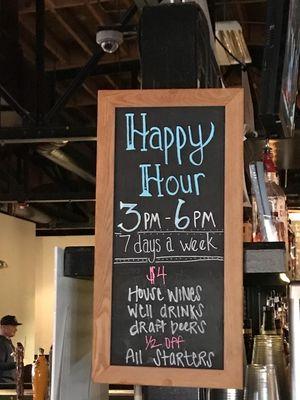 Happy
Hour
3PM-6PM
7 days a week
$4
House wines
Well drinks
draft beers
1/2 off
All Starters